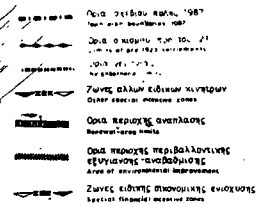 Όρια σχεδίου πόλης 1987
Town plan boundaries 1987
Όρια οικισμού προ του
Limits of pre 1923 settlements
Όρια
Neighborhood
Ζώνες άλλων ειδικών κινήτρων
Other special incentive zones
Όρια περιοχής ανάπλασης
Renewal-area limits
Όρια περιοχής περιβαλλοντικής
εξυγίανσης-αναβάθμισης
Area of environmental improvement
Ζώνες ειδικής οικονομικής ενίσχυσης
Special financial incentive zones